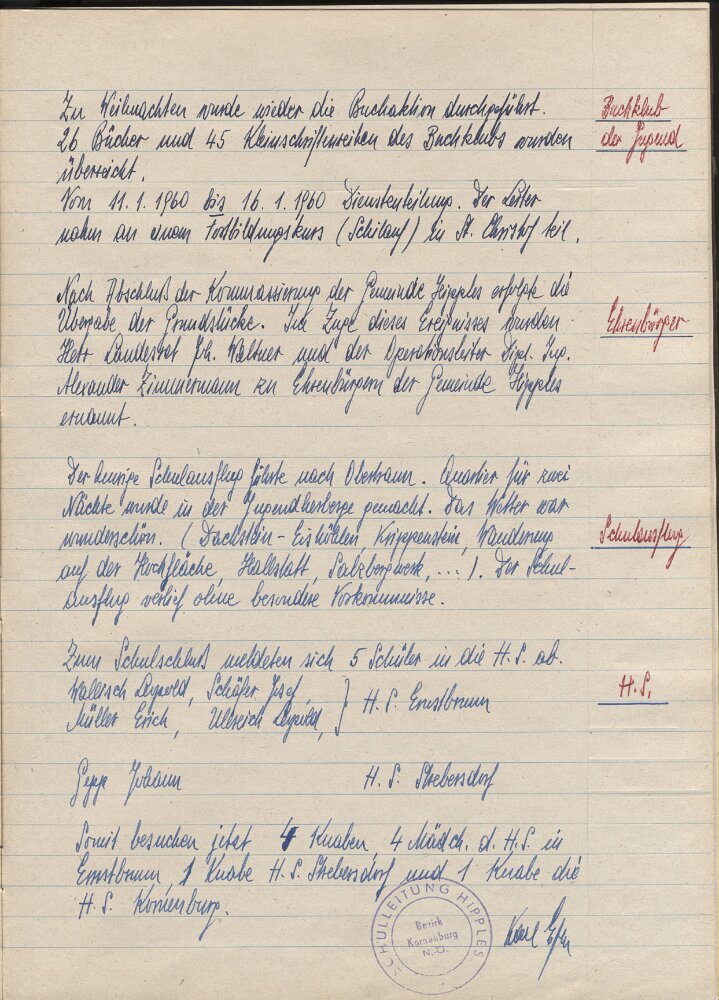 Zu Weihnachten wurde wieder die Buchaktion durchgeführt.
Buchklub
26 Bücher und 45 Kleinschriftenreihen des Buchklubs wurden
der Jugend
überreicht.
Vom 11. 1. 1960 bis 16. 1. 1960 Dienstenteilung. Der Leiter
nahm an einem Fortbildungskurs (Schilauf) in St. Christof teil.
Nach Abschluß der Kommassierung der Gemeinde Hipples erfolgte die
Übergabe der Grundstücke. Im Zuge dieses Ereignisses wurden
Ehrenbürger
Herr Landesrat Joh. Waltner und der Operationsleiter Dipl. Ing.
Alexander Zimmermann zu Ehrenbürgern der Gemeinde Hipples
ernannt.
Der heurige Schulausflug führte nach Obertraun. Quartier für zwei
Nächte wurde in der Jugendherberge gemacht. Das Wetter war
wunderschön. (Dachstein-Eishöhlen, Krippenstein, Wanderung
Schulausflug
auf der Hochfläche, Hallstatt, Salzbergwerk, ...). Der Schul-
ausflug verlief ohne besondere Vorkommnisse.
Zum Schulschluß meldeten sich 5 Schüler in die H.S. ab.
H.S.
Leopold, Schäfer Josef,
Müller Erich, Ullreich Leopold, } H.S. Ernstbrunn
Gepp Johann H.S. Strebersdorf
Somit besuchen jetzt 4 Knaben 4 Mädch. d. H.S. in
Ernstbrunn 1 Knabe H.S. Strebersdorf und 1 Knabe die
H.S. Korneuburg.
SCHULLEITUNG HIPPLES
Bezirk
Korneuburg
N.Ö.
Karl